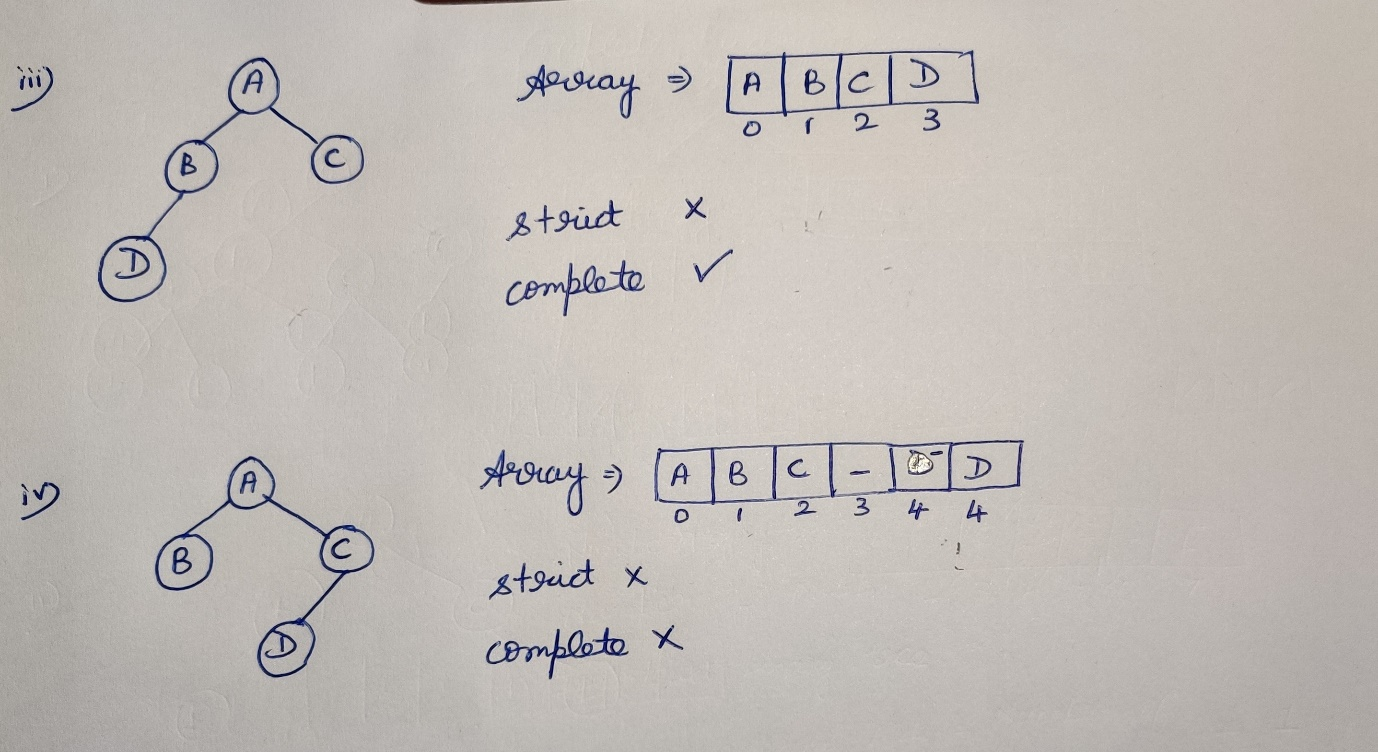 iii)
A
B
C
D
Array ⇒ A B C D
0 1 2 3
strict ×
complete ✓
iv)
A
B
C
D
Array ⇒ A B C – – D
0 1 2 3 4 4
strict ×
complete ×